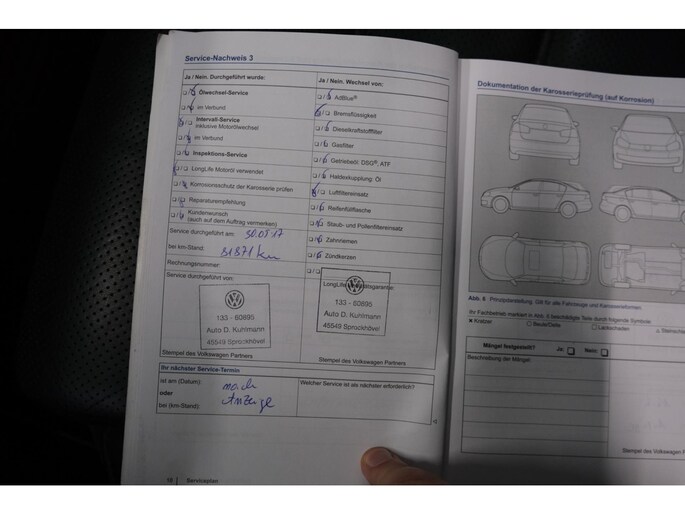 Service-Nachweis 3
Ja / Nein. Durchgeführt wurde:
Ölwechsel-Service
im Verbund
Intervall-Service
inklusive Motorölwechsel
im Verbund
Inspektions-Service
LongLife Motoröl verwendet
Korrosionsschutz der Karosserie prüfen
Reparaturempfehlung
Kundenwunsch
(auch auf dem Auftrag vermerken)
Service durchgeführt am: 30.05.17
bei km-Stand: 31871 km
Rechnungsnummer:
Service durchgeführt von:
133 - 60895
Auto D. Kuhlmann
45549 Sprockhövel
Stempel des Volkswagen Partners
Ja / Nein. Wechsel von:
AdBlue®
Bremsflüssigkeit
Dieselkraftstofffilter
Gasfilter
Getriebeöl: DSG®, ATF
Haldexkupplung: Öl
Luftfiltereinsatz
Reifenfüllflasche
Staub- und Pollenfiltereinsatz
Zahnriemen
Zündkerzen
133 - 60895
Auto D. Kuhlmann
45549 Sprockhövel
Stempel des Volkswagen Partners
Ihr nächster Service-Termin
ist am (Datum): nach
oder
bei (km-Stand): Anzeige
Welcher Service ist als nächster erforderlich?
Serviceplan
Dokumentation der Karosserieprüfung (auf Korrosion)
Abb. 6 Prinzipdarstellung: Gilt für alle Fahrzeuge und Karosserieformen.
Ihr Fachbetrieb markiert in Abb. 6 beschädigte Teile durch folgende Symbole:
Kratzer Beule/Delle Lackschaden
Mängel festgestellt? Ja: Nein:
Beschreibung der Mängel:
Stempel des Volkswagen